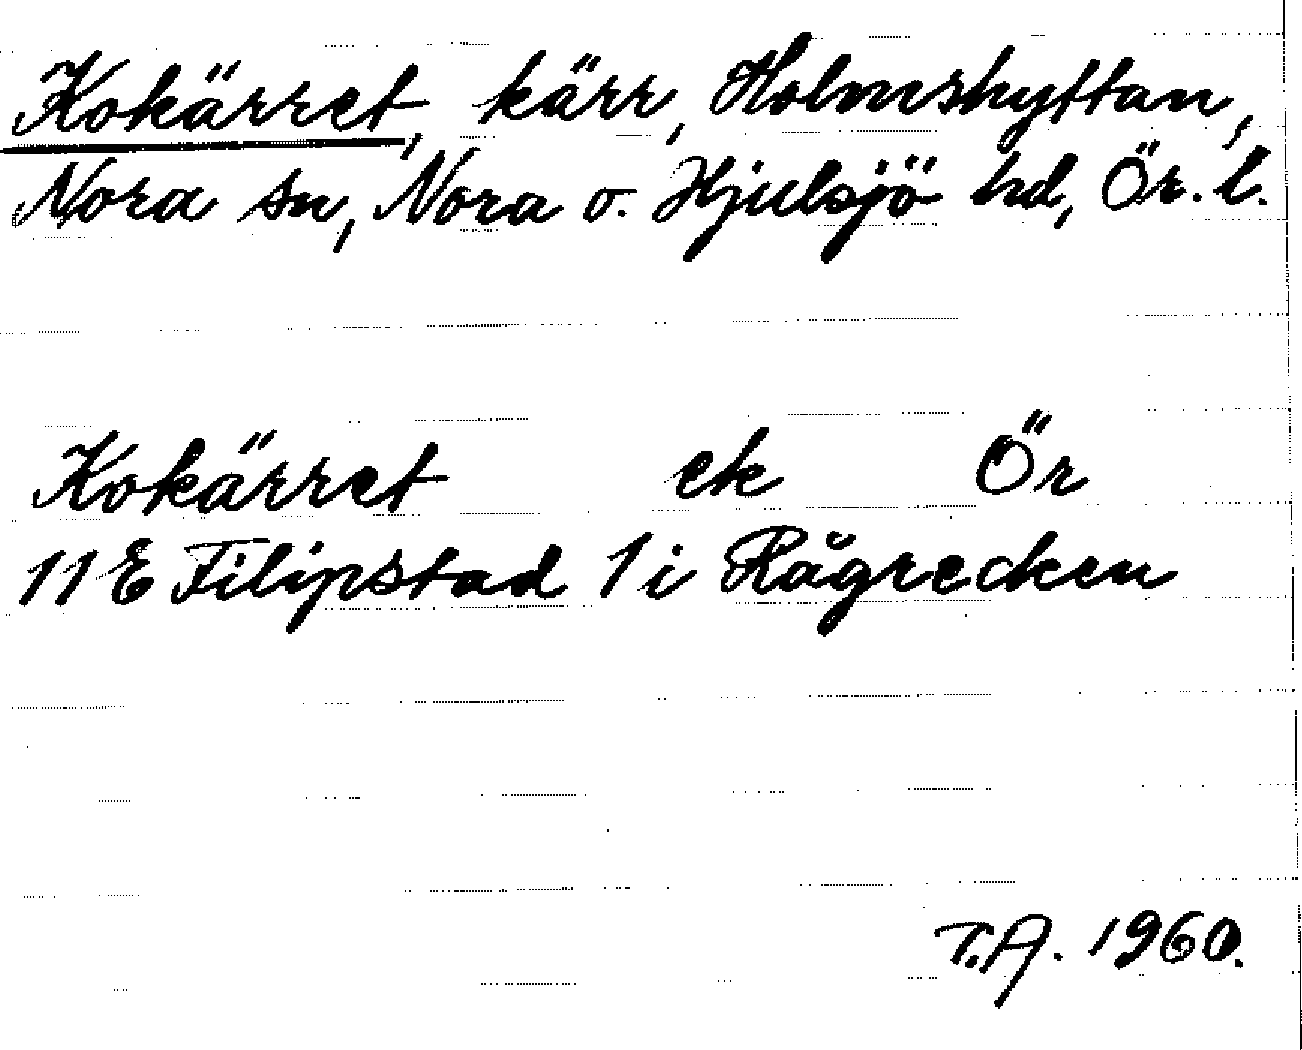 Kokärret, kärr, Holmshyttan,
Nora sn, Nora o. Hjulsjö hd, Ör. l.
Kokärret ek Ör
11E Filipstad 1i Rågrecken
T.A. 1960.